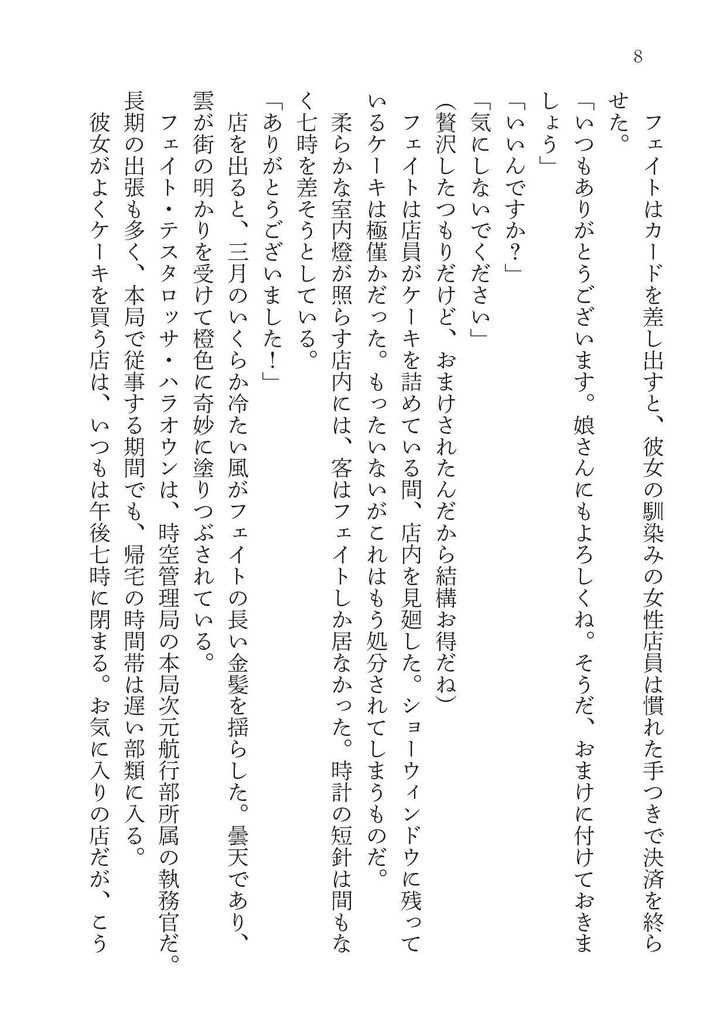 8
フェイトはカードを差し出すと、彼女の馴染みの女性店員は慣れた手つきで決済を終ら
せた。
「いつもありがとうございます。娘さんにもよろしくね。そうだ、おまけに付けておきま
しょう」
「いいんですか？」
「気にしないでください」
(贅沢したつもりだけど、おまけされたんだから結構お得だね)
フェイトは店員がケーキを詰めている間、店内を見廻した。ショーウィンドウに残って
いるケーキは極僅かだった。もったいないがこれはもう処分されてしまうものだ。
柔らかな室内燈が照らす店内には、客はフェイトしか居なかった。時計の短針は間もな
く七時を差そうとしている。
「ありがとうございました！」
店を出ると、三月のいくらか冷たい風がフェイトの長い金髪を揺らした。曇天であり、
雲が街の明かりを受けて橙色に奇妙に塗りつぶされている。
フェイト・テスタロッサ・ハラオウンは、時空管理局の本局次元航行部所属の執務官だ。
長期の出張も多く、本局で従事する期間でも、帰宅の時間帯は遅い部類に入る。
彼女がよくケーキを買う店は、いつもは午後七時に閉まる。お気に入りの店だが、こう